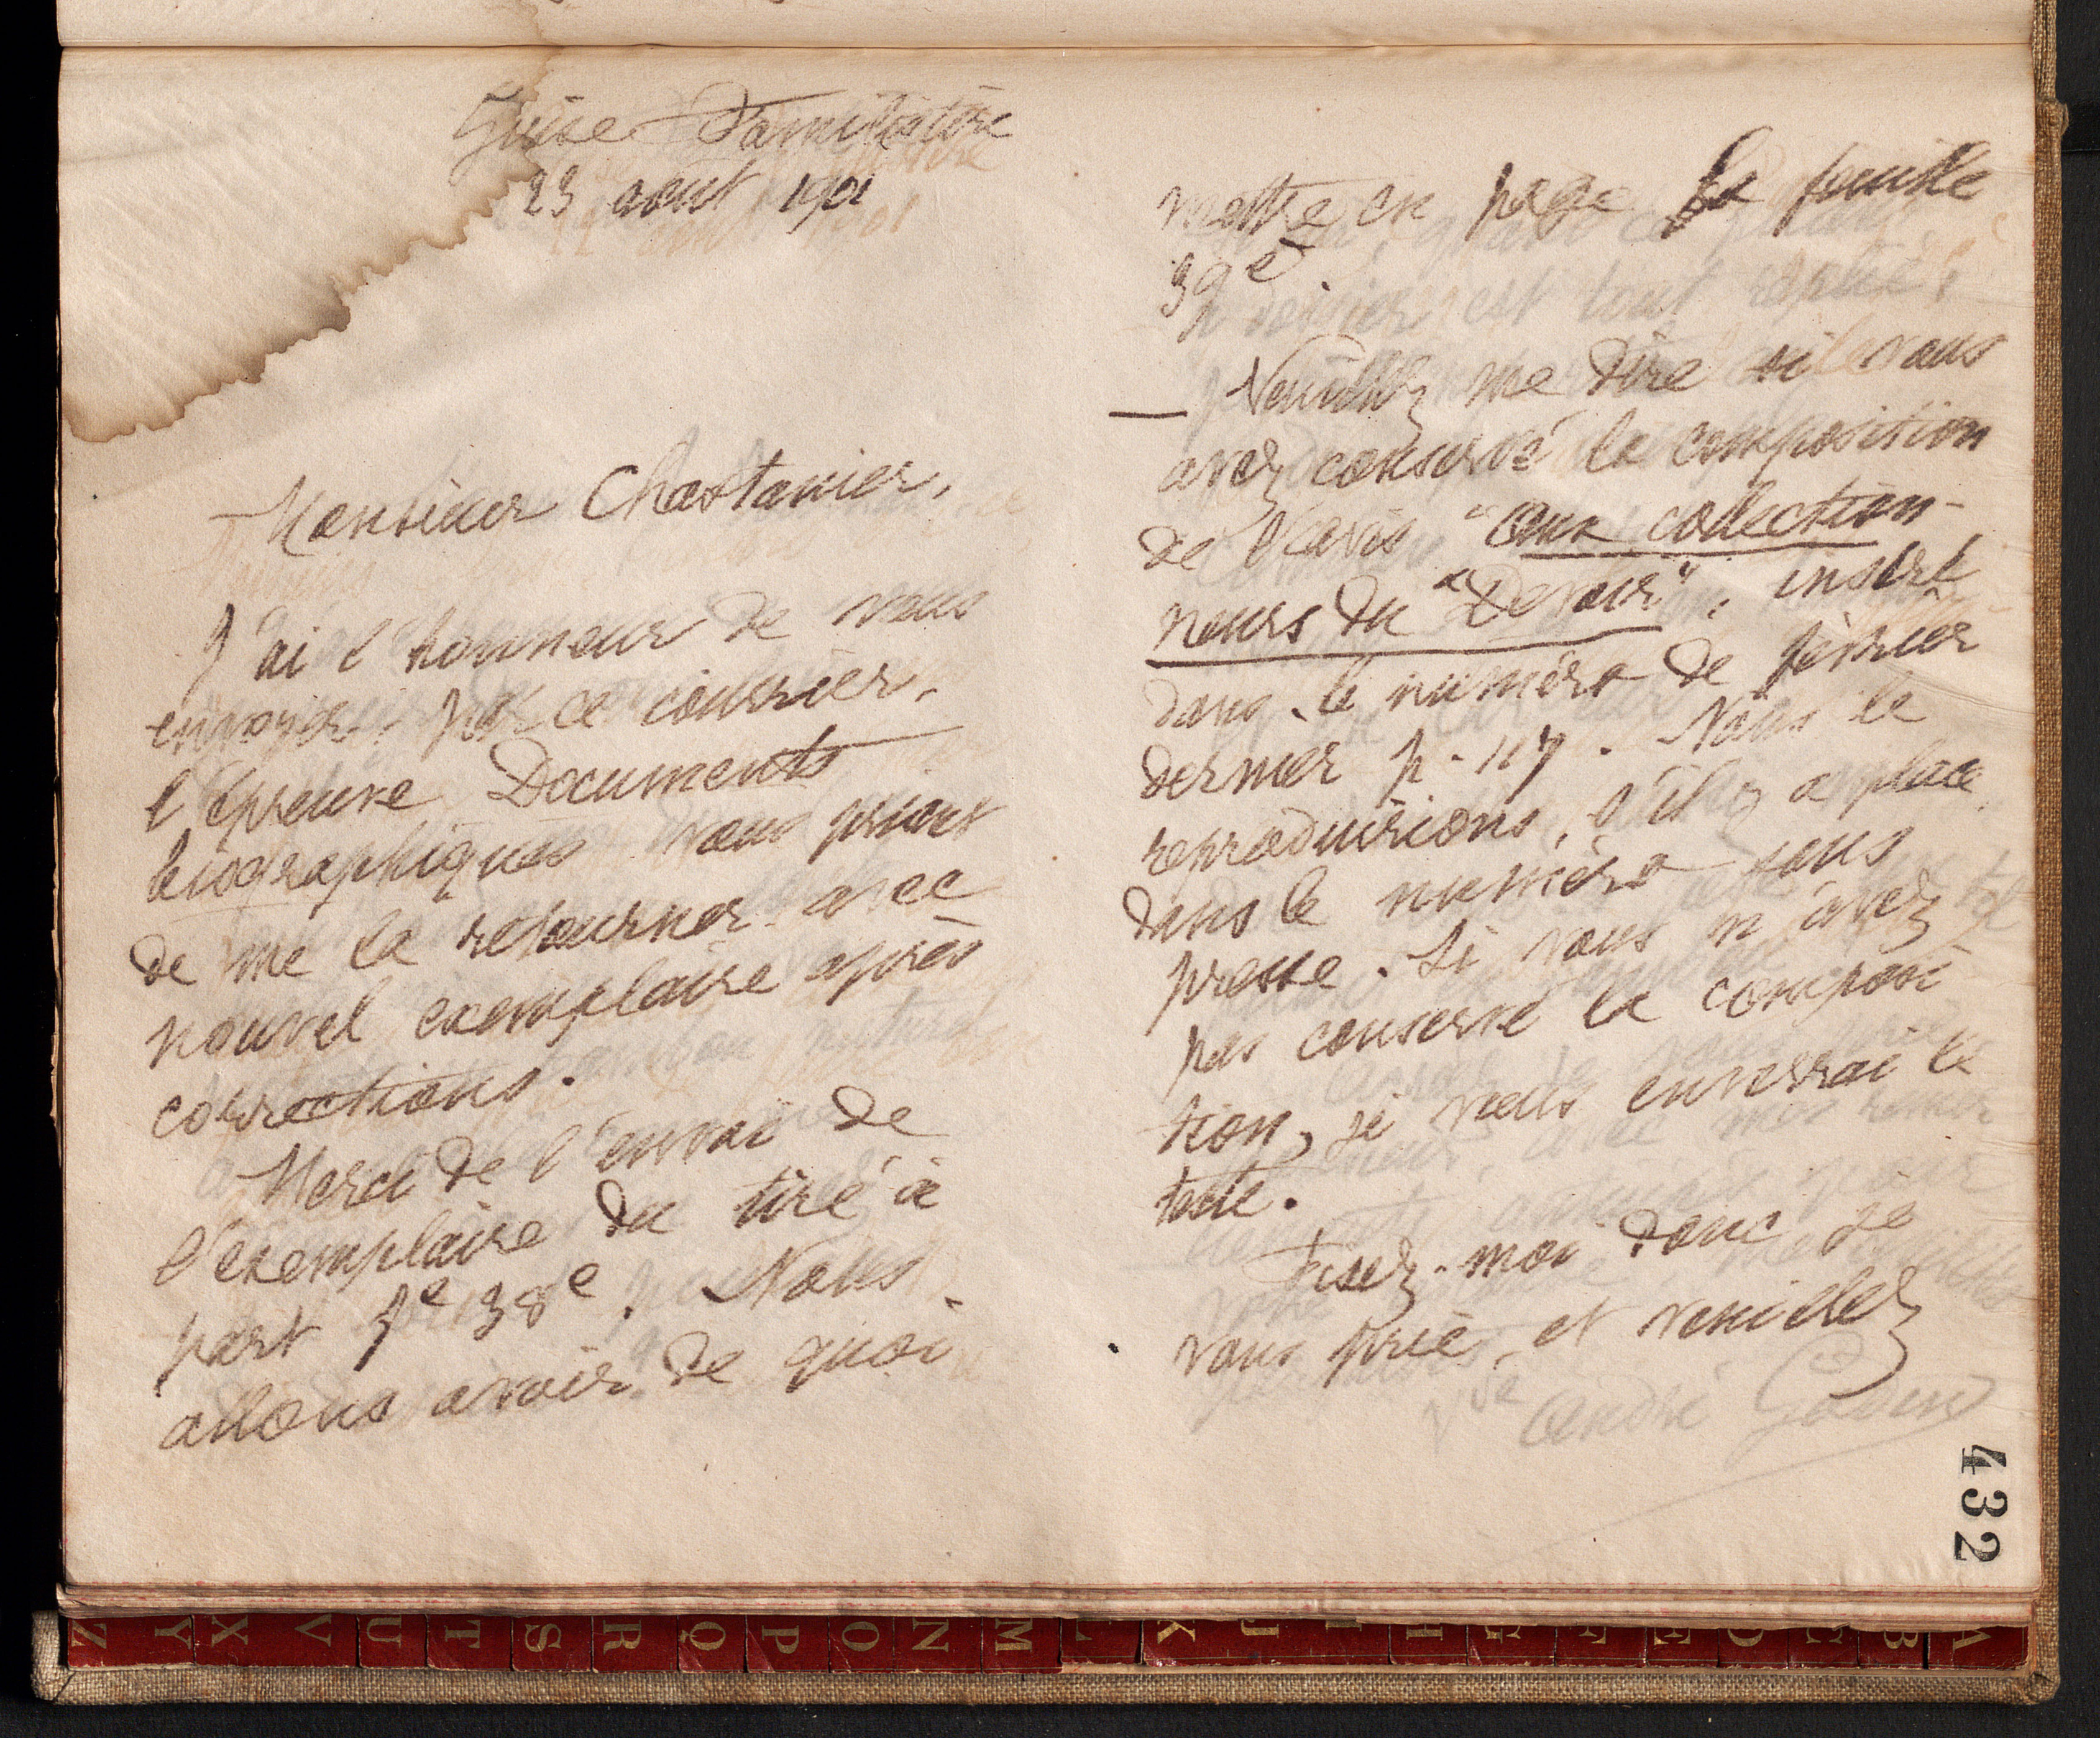 Guise Familistère
23 août 1901
Monsieur Chastanier,
J'ai l'honneur de vous
envoyer, par ce courrier,
l'épreuve Documents
biographiques vous priant
de me la retourner avec
nouvel exemplaire après
corrections.
Merci de l'envoi de
l'exemplaire du tiré à
part fe 38e. Nous
allons avoir de quoi
mettre en page la feuille
39e.
— Veuillez me dire si vous
avez conservé la composition
de l'avis "aux collection-
neurs du "Devoir", inséré
dans le numéro de février
dernier p. 117. Nous le
reproduirions, s'il y a place,
dans le numéro sous
presse. Si vous n'avez
pas conservé la composi
tion, je vous enverrai le
texte.
Fixez-moi donc je
vous prie, et veuillez
Vve André Godin
432
Z Y X V U T S R Q P O N M L K J I H G F E D C B A